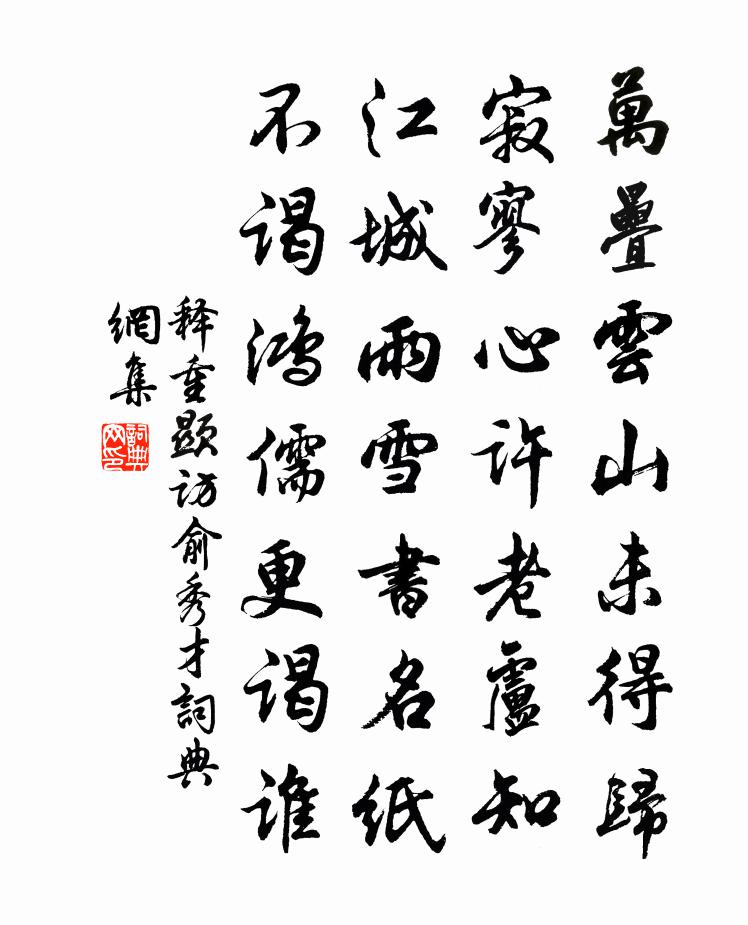 萬疊雲山未得歸
寂寥心許老盧知
江城雨雪書名紙
不謁鴻儒更謁誰
释重顯访俞秀才詞典
網集
詞典
网印